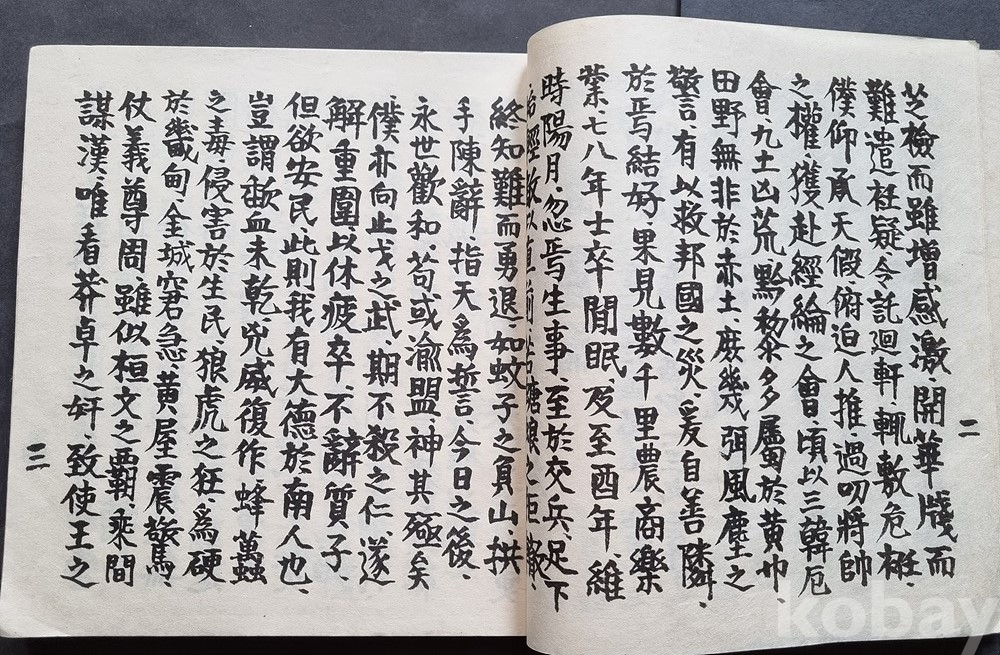 二
芝檢而雖增感激、開華牋而
難遣疑、今託迴軒、輒敷危衽、
僕仰承天假俯迫人推過叨將帥
之權、獲赴經綸之會、頃以三韓厄
會九土凶荒黔黎多屬於黃巾、
田野無非於赤土、庶幾弭風塵之
警、有以救邦國之災、爰自善隣、
於焉結好果見數千里農商樂
業、七八年士卒閒眠、及至酉年、維
時陽月、忽焉生事、至於交兵、足下
終知難而勇退、如蚊子之負山、拱
手陳辭指天爲誓、今日之後、
永世歡和、苟或渝盟、神其殛矣
僕亦向止戈之武、期不殺之仁、遂
解重圍、以休疲卒、不辭質子、
但欲安民、此則我有大德於南人也、
豈謂歃血未乾、兇威復作、蜂蠆
之毒、侵害於生民、狼虎之狂、爲硬
於畿甸、金城窘急、黃屋震驚、
仗義尊周、雖似桓文之覇、乘間
謀漢、唯看莽卓之奸、致使王之
三
kobay